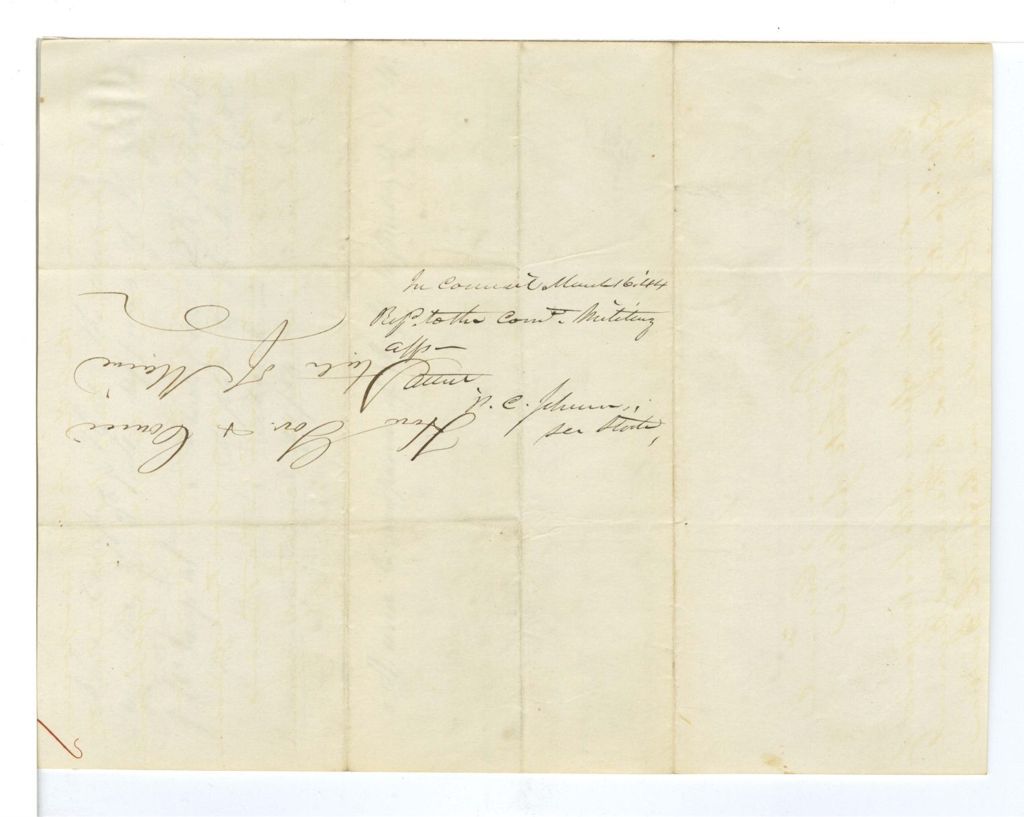 In Council March 16, '44
Refd. to the Comt. Military
affs
Attest
P. C. Johnson,
Sec State,
Hon Gov. & Council
State of Maine